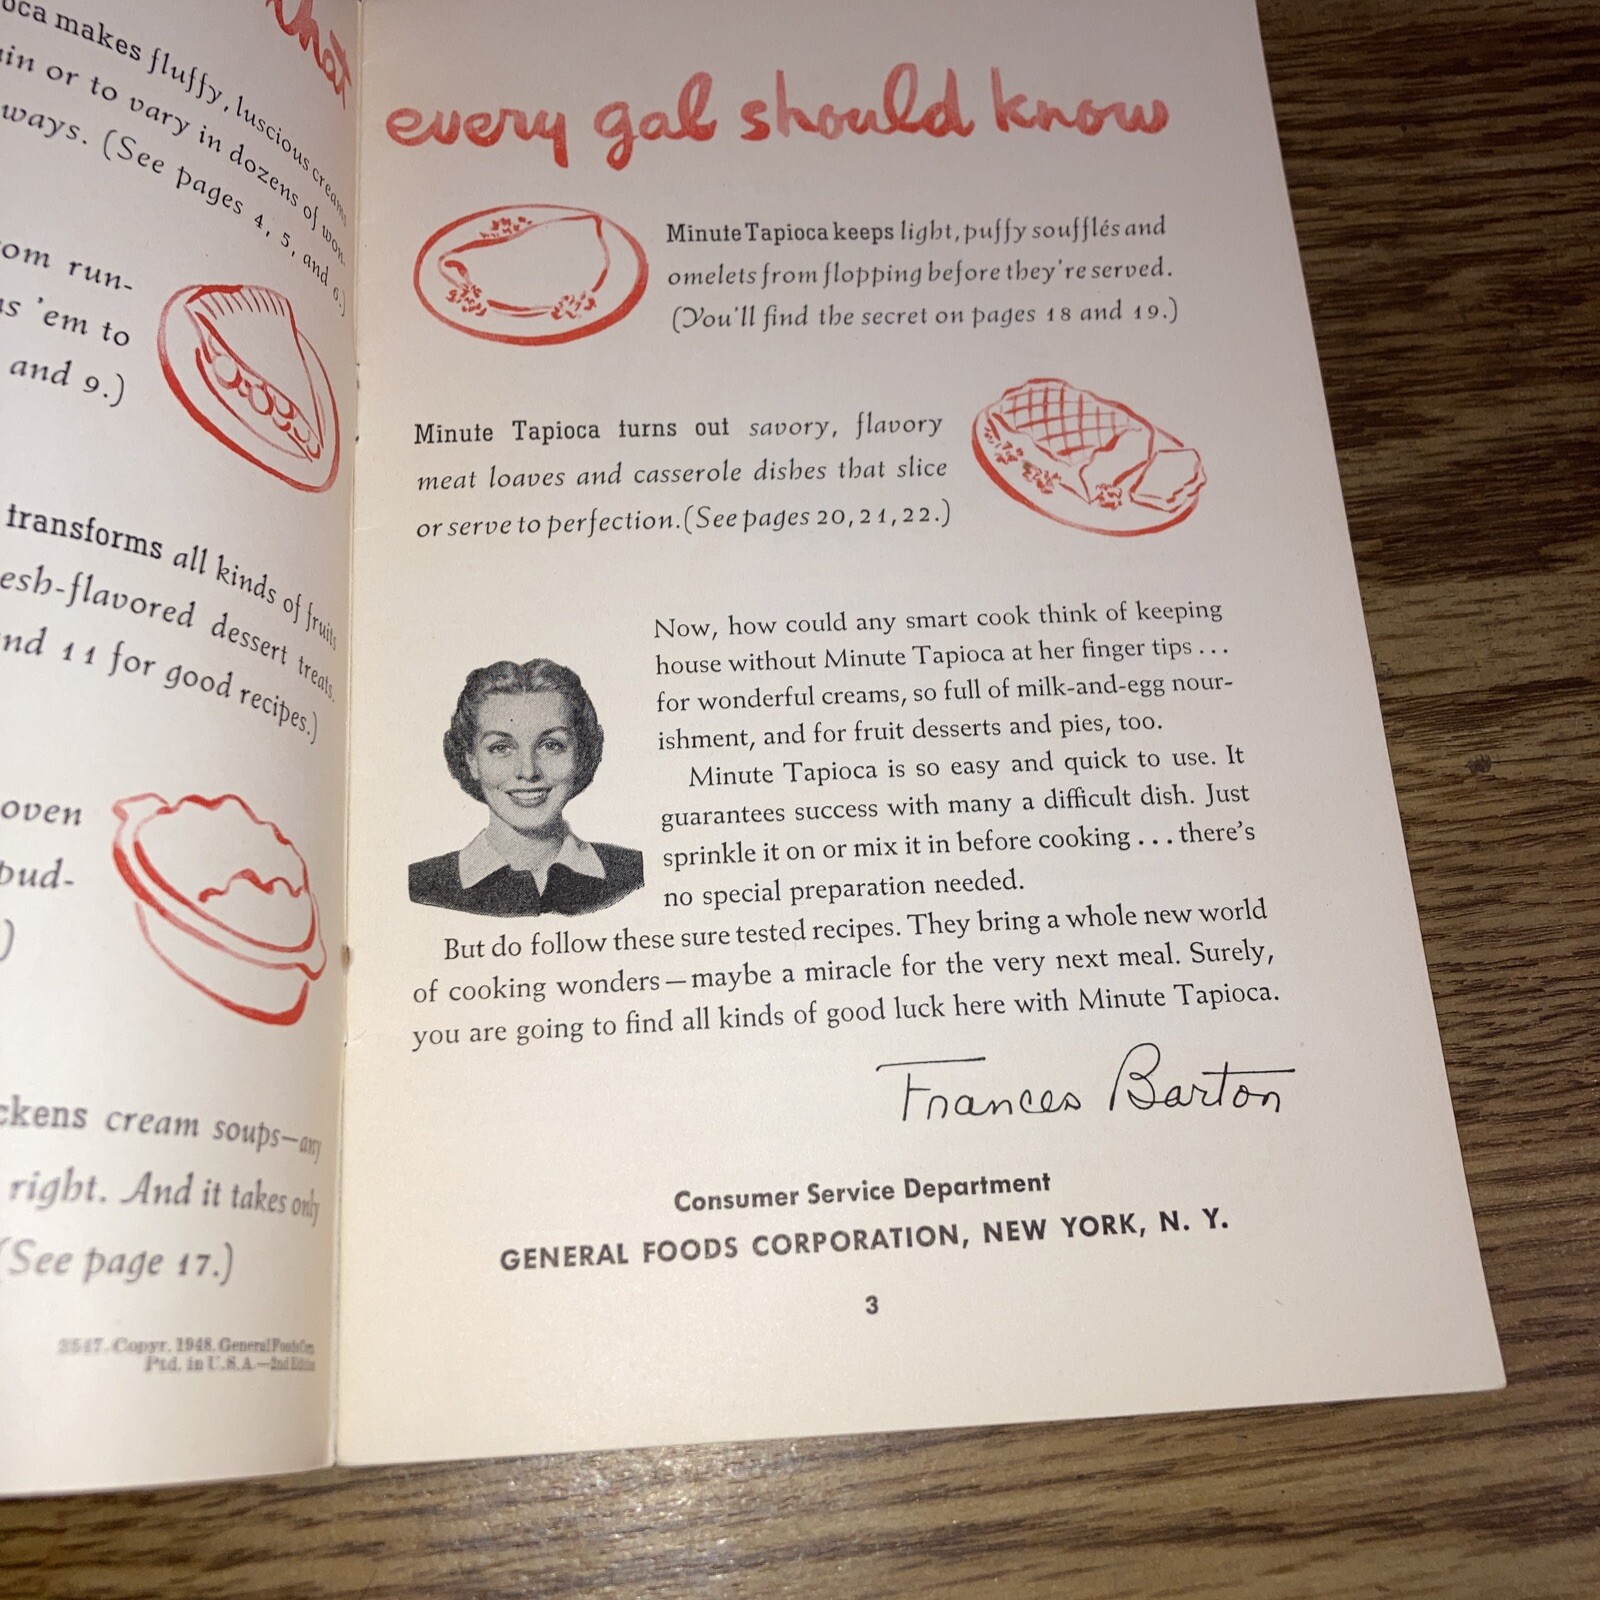 that
oca makes fluffy, luscious creams
in or to vary in dozens of won-
ways. (See pages 4, 5, and 6.)
om run-
s 'em to
and 9.)
transforms all kinds of fruits
esh-flavored dessert treats.
nd 11 for good recipes.)
oven
pud-
)
ckens cream soups—any
right. And it takes only
(See page 17.)
2547. Copyr. 1948. General Foods
Ptd. in U.S.A.—2nd
every gal should know
Minute Tapioca keeps light, puffy soufflés and
omelets from flopping before they're served.
(You'll find the secret on pages 18 and 19.)
Minute Tapioca turns out savory, flavory
meat loaves and casserole dishes that slice
or serve to perfection. (See pages 20, 21, 22.)
Now, how could any smart cook think of keeping
house without Minute Tapioca at her finger tips . . .
for wonderful creams, so full of milk-and-egg nour-
ishment, and for fruit desserts and pies, too.
Minute Tapioca is so easy and quick to use. It
guarantees success with many a difficult dish. Just
sprinkle it on or mix it in before cooking . . . there's
no special preparation needed.
But do follow these sure tested recipes. They bring a whole new world
of cooking wonders—maybe a miracle for the very next meal. Surely,
you are going to find all kinds of good luck here with Minute Tapioca.
Frances Barton
Consumer Service Department
GENERAL FOODS CORPORATION, NEW YORK, N. Y.
3